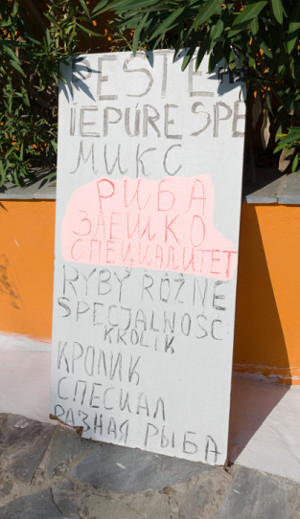 PEȘTE
IEPURE SPE
МИКС
РИБА
ЗАЕШКО
СПЕЦИАЛИТЕТ
RYBY RÓŻNE
SPECJALNOŚC
KRÓLIK
КРОЛИК
СПЕСИАЛ
РАЗНАЯ РЫБА